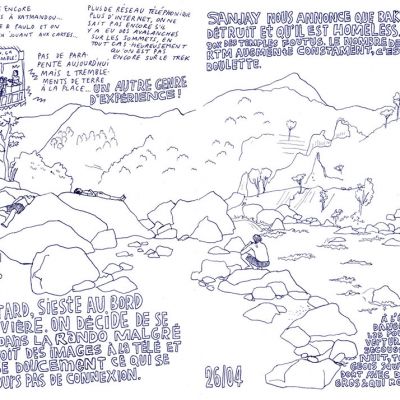 ENCORE
S À KATMANDOU...
R À PAULO. ET ON
EN JOUANT AUX CARTES...
PLUS DE RÉSEAU TÉLÉPHONIQUE
PLUS D'INTERNET, ON NE
SAIT PAS ENCORE S'IL
Y A EU DES AVALANCHES
SUR LES SOMMETS, EN
TOUT CAS HEUREUSEMENT
QU'ON EST PAS
ENCORE SUR LE TREK
PAS DE PARA
PENTE AUJOURD'HUI
MAIS 2 TREMBLE-
MENTS DE TERRE
À LA PLACE...
UN AUTRE GENRE
D'EXPÉRIENCE!
SANJAY NOUS ANNONCE QUE BAK
DÉTRUIT ET QU'IL EST HOMELESS.
DES TEMPLES FOUTUS. LE NOMBRE DE
AUGMENTE CONSTAMENT, C'ES
ROULETTE.
TARD, SIESTE AU BORD
IVIÈRE. ON DÉCIDE DE SE
DANS LA RANDO MALGRÉ
OIT DES IMAGES À LA TÉLÉ ET
SE DOUCEMENT CE QUI SE
OURS PAS DE CONNEXION.
26/04
À L'E
DANS
LES PO
VERTUR
SECOUS
NUIT, TO
GEOIS SOU
DORT AVEC E
GROS & QUI RO